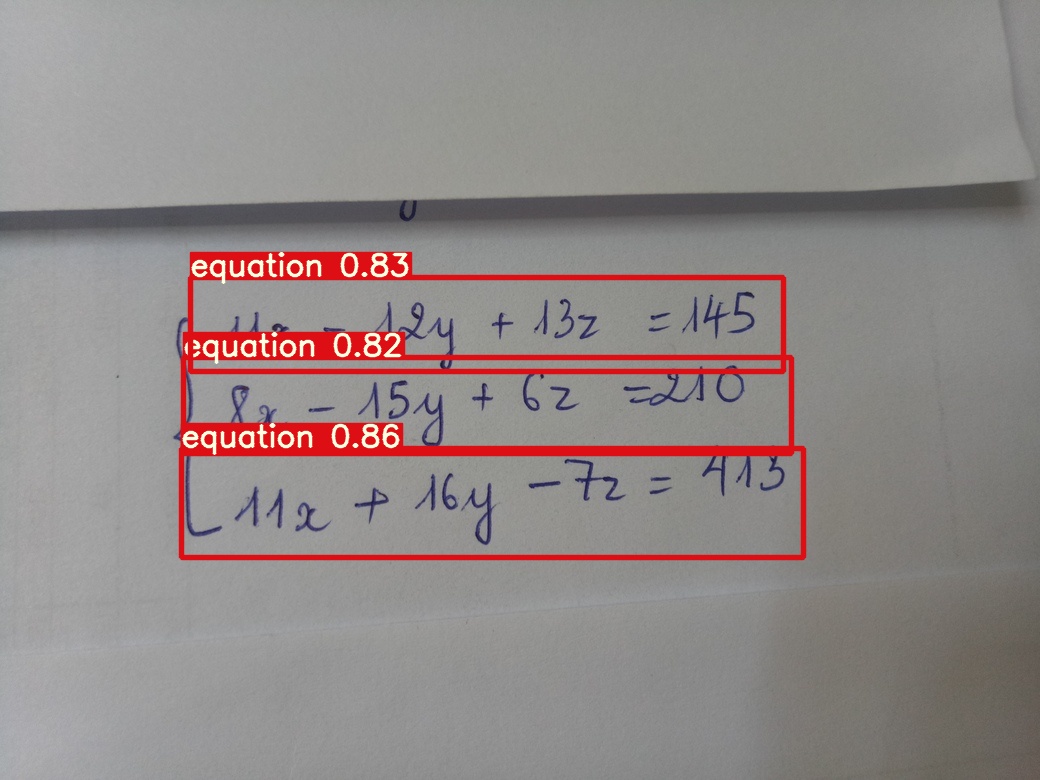 equation 0.83
11x - 12y + 13z = 145
equation 0.82
8x - 15y + 6z = 210
equation 0.86
11x + 16y - 7z = 413